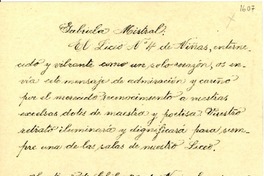 1607
Gabriela Mistral:
El Liceo Nº 4 de Niñas, enterne-
cido y vibrante como un solo corazón, os en-
vía este mensaje de admiración y cariño
por el merecido reconocimiento a vuestras
excelsas dotes de maestra y poetisa. Vuestro
retrato iluminará y dignificará para siem-
pre una de las salas de nuestro Liceo.